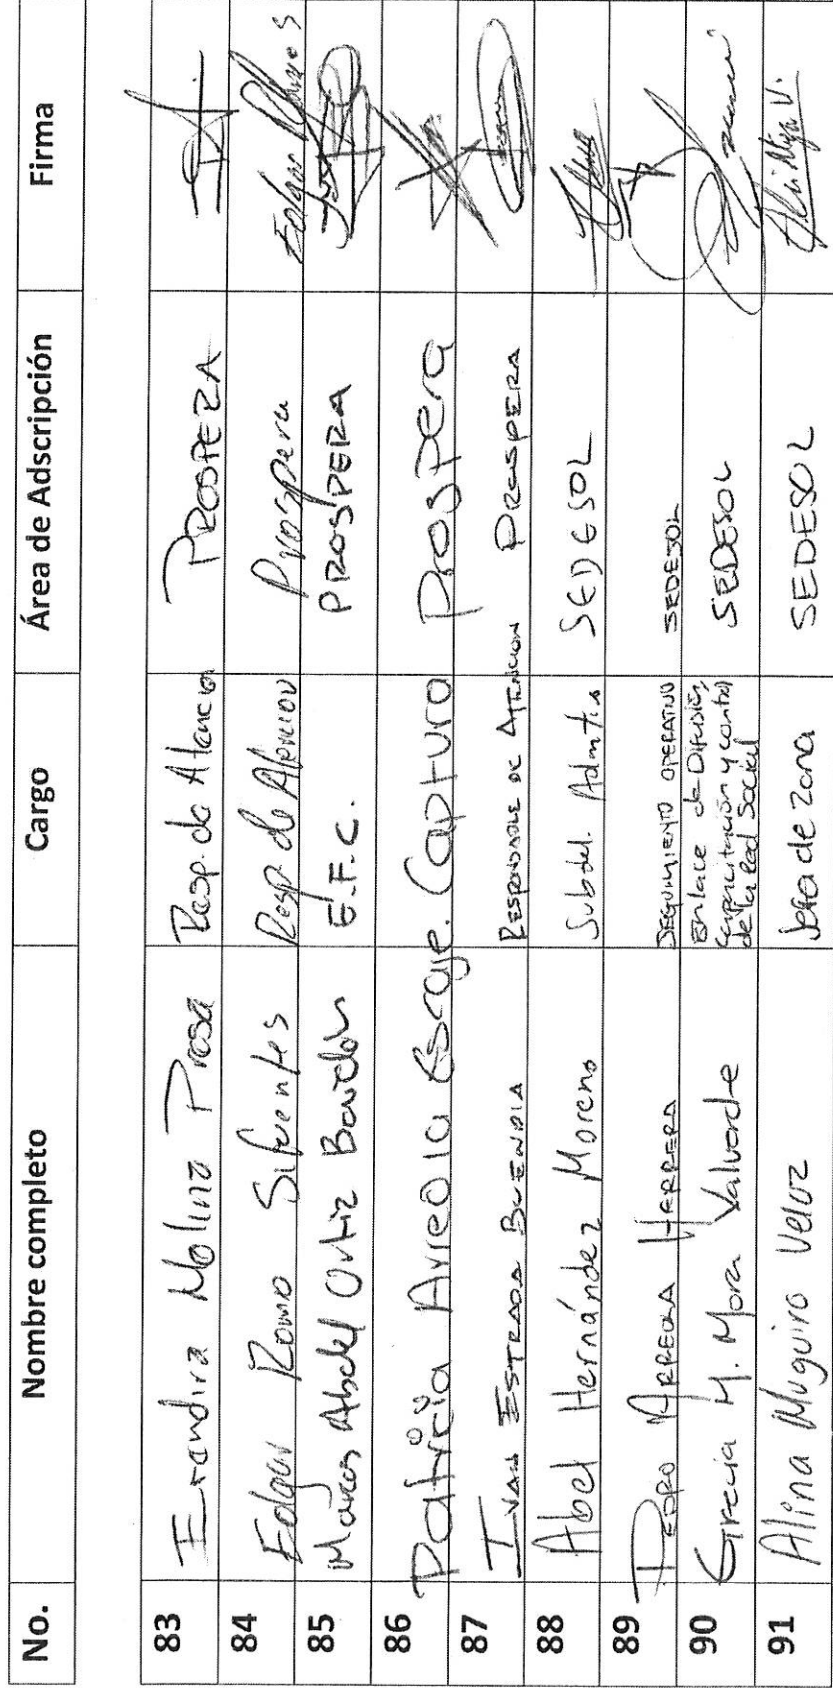 No. Nombre completo Cargo Área de Adscripción Firma
83 Erandira Molina Resp. de Atencion PROSPERA
84 Edgar Romo Sifuentes Resp de Atencion Prospera
85 Marcos Abdel Ortiz E.F.C. PROSPERA
86 Patricia Arreola Captura Prospera
87 IVAN ESTRADA BUENDIA RESPONSABLE DE ATENCION PROSPERA
88 Abel Hernández Moreno Subdel. Admtia SEDESOL
89 PEDRO ARREOLA HERRERA SEGUIMIENTO OPERATIVO SEDESOL
90 Grecia M. Mora Valverde Enlace de Difusión,
Capacitación y control
de la Red Social SEDESOL
91 Alina Muguiro Veloz Jefa de zona SEDESOL